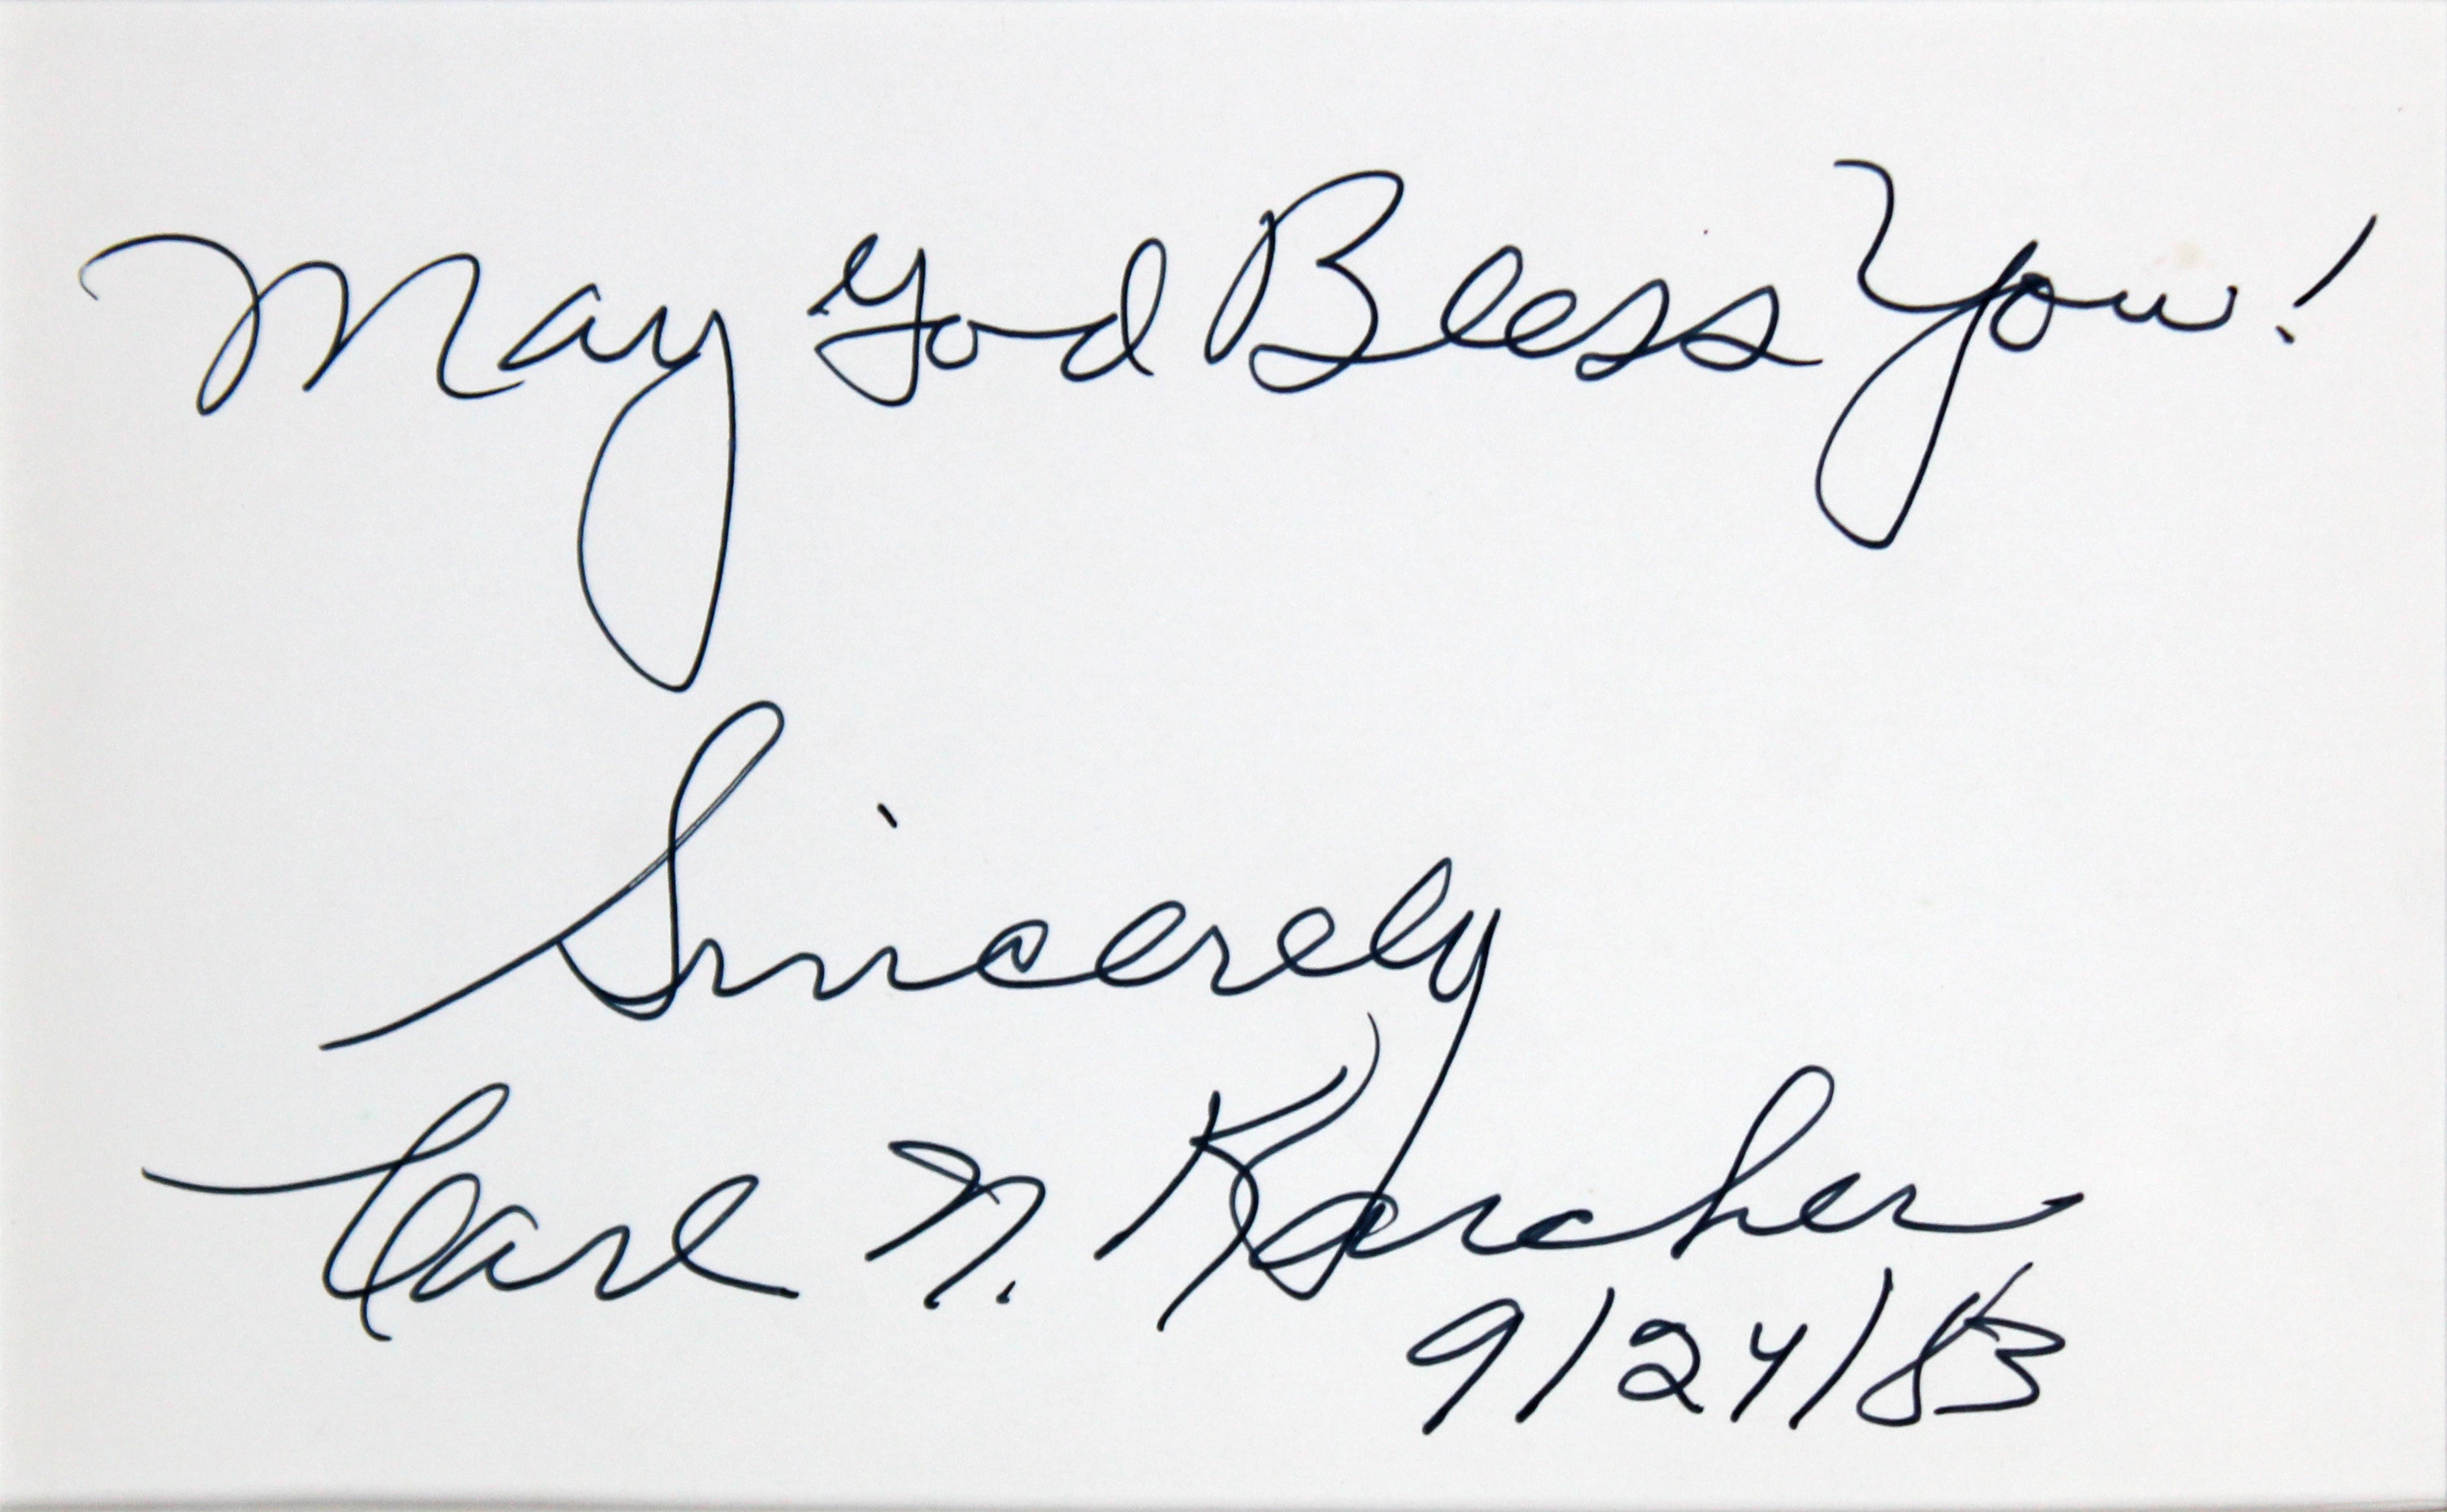 May God Bless You!
Sincerely
Carl N. Karcher
9/24/83